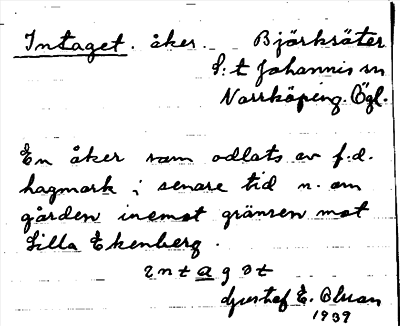 Intaget. åker. Björksäter
S:t Johannis sn
Norrköping. Ögl.
En åker som odlats av f.d.
hagmark i senare tid n. om
gården inemot gränsen mot
Lilla Ekenberg.
intagət
Gustaf E. Olsson
1939